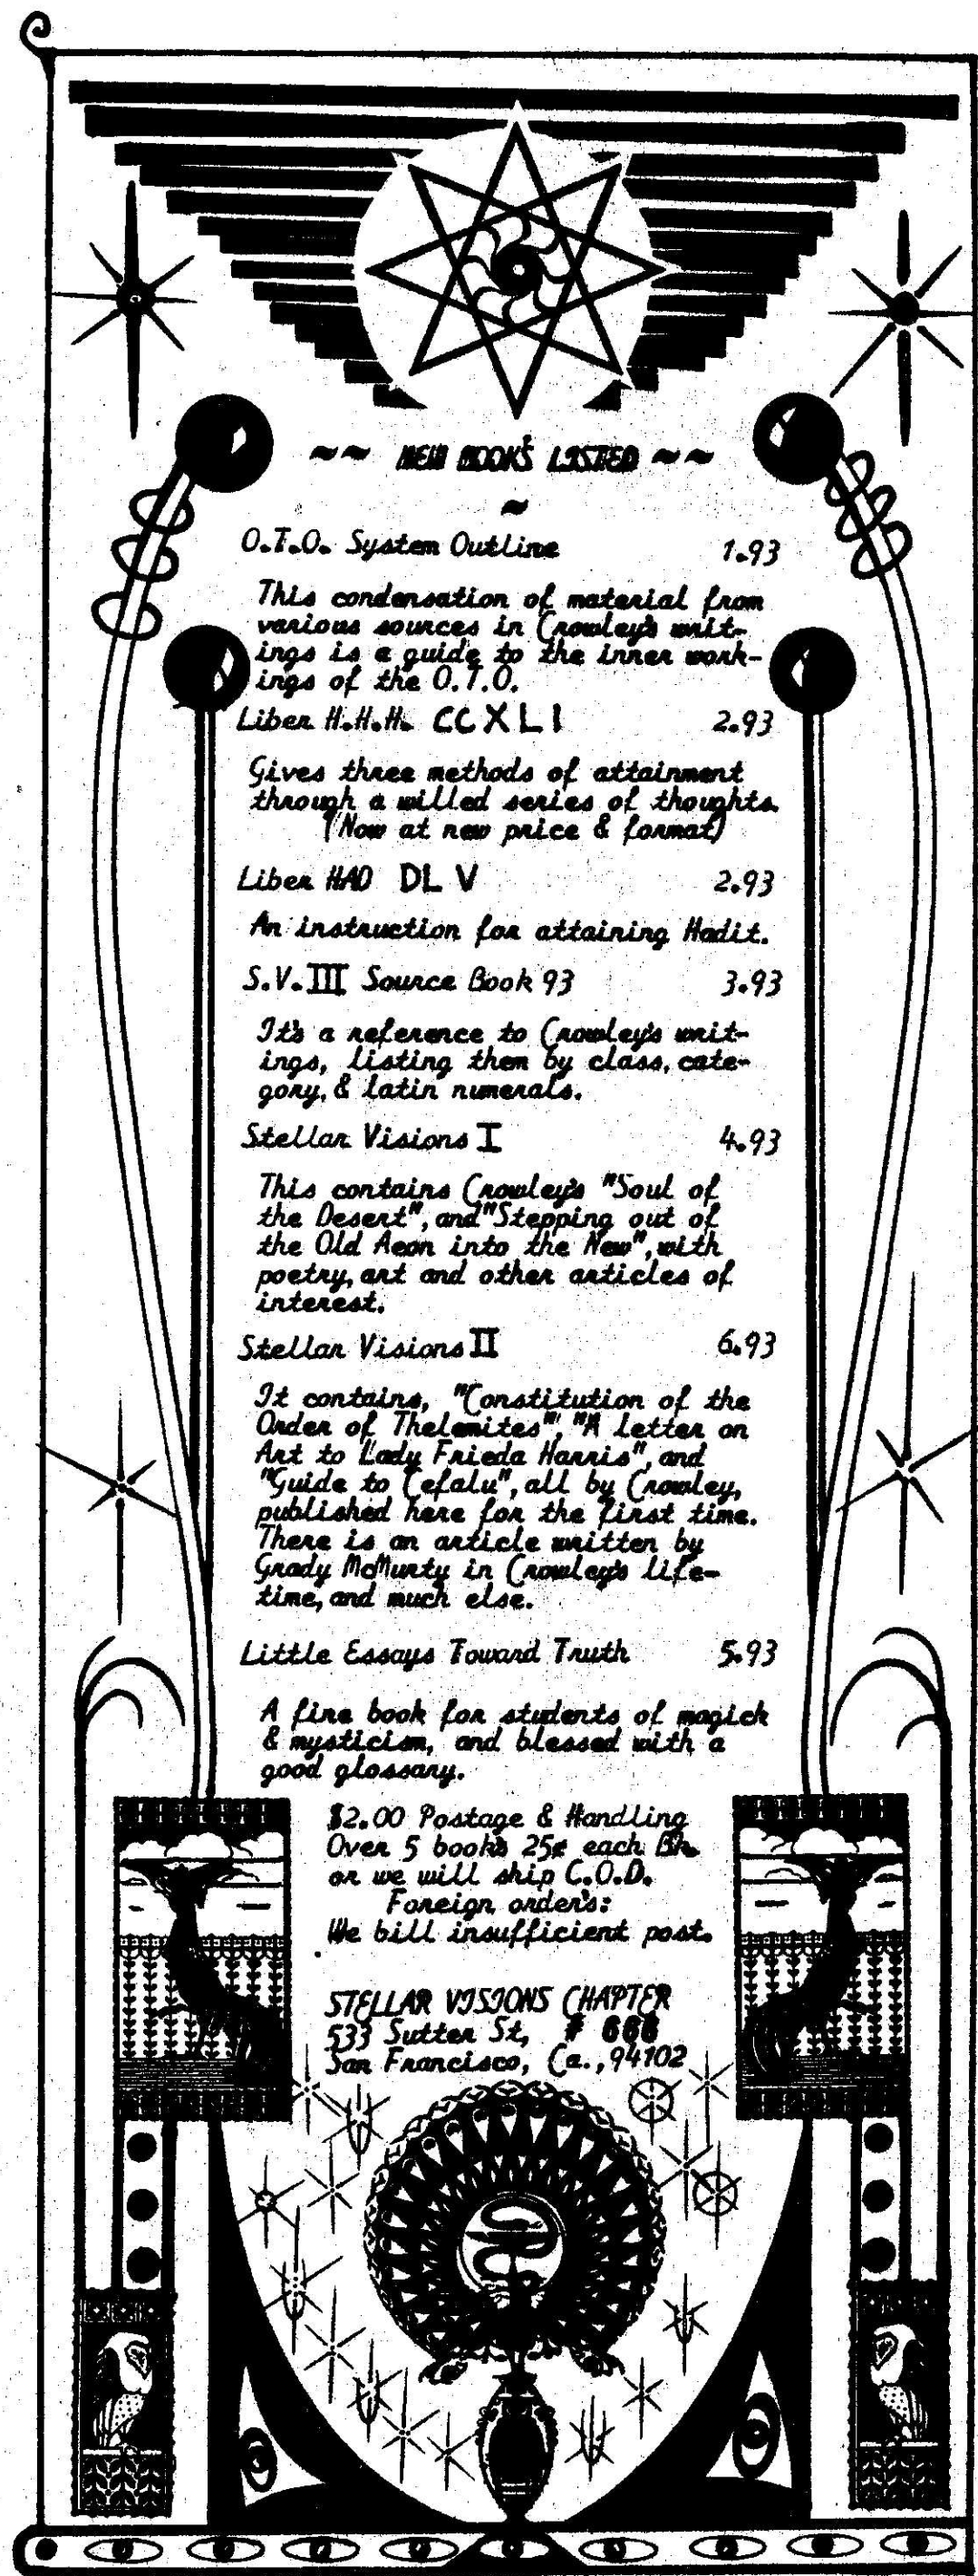 ~~ NEW BOOK'S LISTED ~~
~
O.T.O. System Outline 1.93
This condensation of material from
various sources in Crowley's writ-
ings is a guide to the inner work-
ings of the O.T.O.
Liber H.H.H. CCXLI 2.93
Gives three methods of attainment
through a willed series of thoughts.
(Now at new price & format)
Liber HAD DL V 2.93
An instruction for attaining Hadit.
S.V.III Source Book 93 3.93
It's a reference to Crowley's writ-
ings, listing them by class, cate-
gory, & latin numerals.
Stellar Visions I 4.93
This contains Crowley's "Soul of
the Desert", and "Stepping out of
the Old Aeon into the New", with
poetry, art and other articles of
interest.
Stellar Visions II 6.93
It contains, "Constitution of the
Order of Thelemites", "A Letter on
Art to Lady Frieda Harris", and
"Guide to Cefalu", all by Crowley,
published here for the first time.
There is an article written by
Grady McMurty in Crowley's life-
time, and much else.
Little Essays Toward Truth 5.93
A fine book for students of magick
& mysticism, and blessed with a
good glossary.
$2.00 Postage & Handling
Over 5 books 25¢ each Bk.
or we will ship C.O.D.
Foreign order's:
We bill insufficient post.
STELLAR VISIONS CHAPTER
533 Sutter St, # 666
San Francisco, Ca., 94102